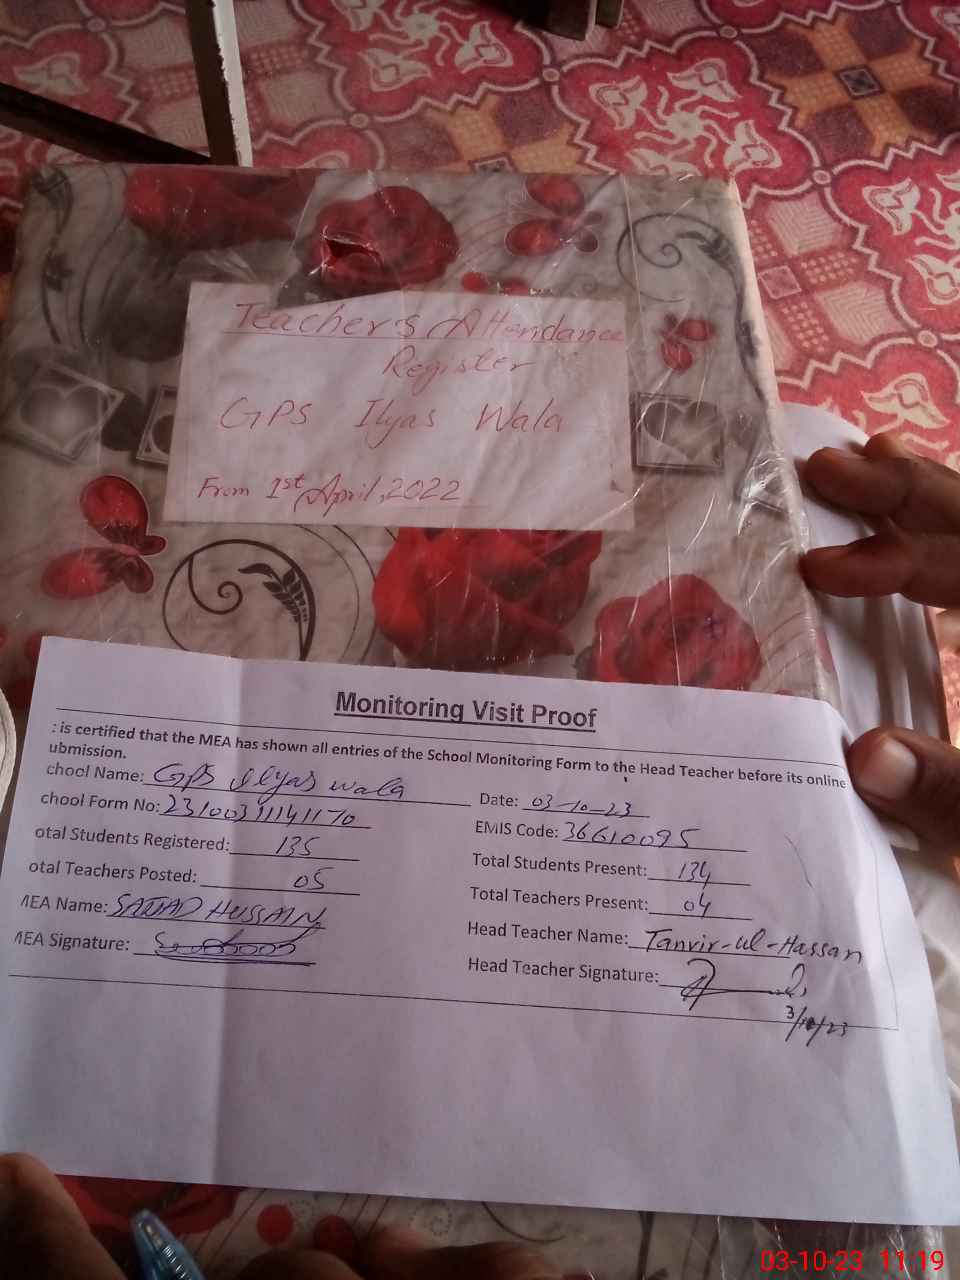 Teacher's Attendance
Register
GPS Ilyas Wala
From 1st April, 2022
Monitoring Visit Proof
: is certified that the MEA has shown all entries of the School Monitoring Form to the Head Teacher before its online
ubmission.
chool Name: GPS Ilyas wala
Date: 03-10-23
chool Form No: 23100391141170
EMIS Code: 36610095
otal Students Registered: 135
Total Students Present: 134
otal Teachers Posted: 05
Total Teachers Present: 04
MEA Name: SAJJAD HUSSAIN
Head Teacher Name: Tanvir-ul-Hassan
MEA Signature:
Head Teacher Signature:
3/10/23
03-10-23 11:19